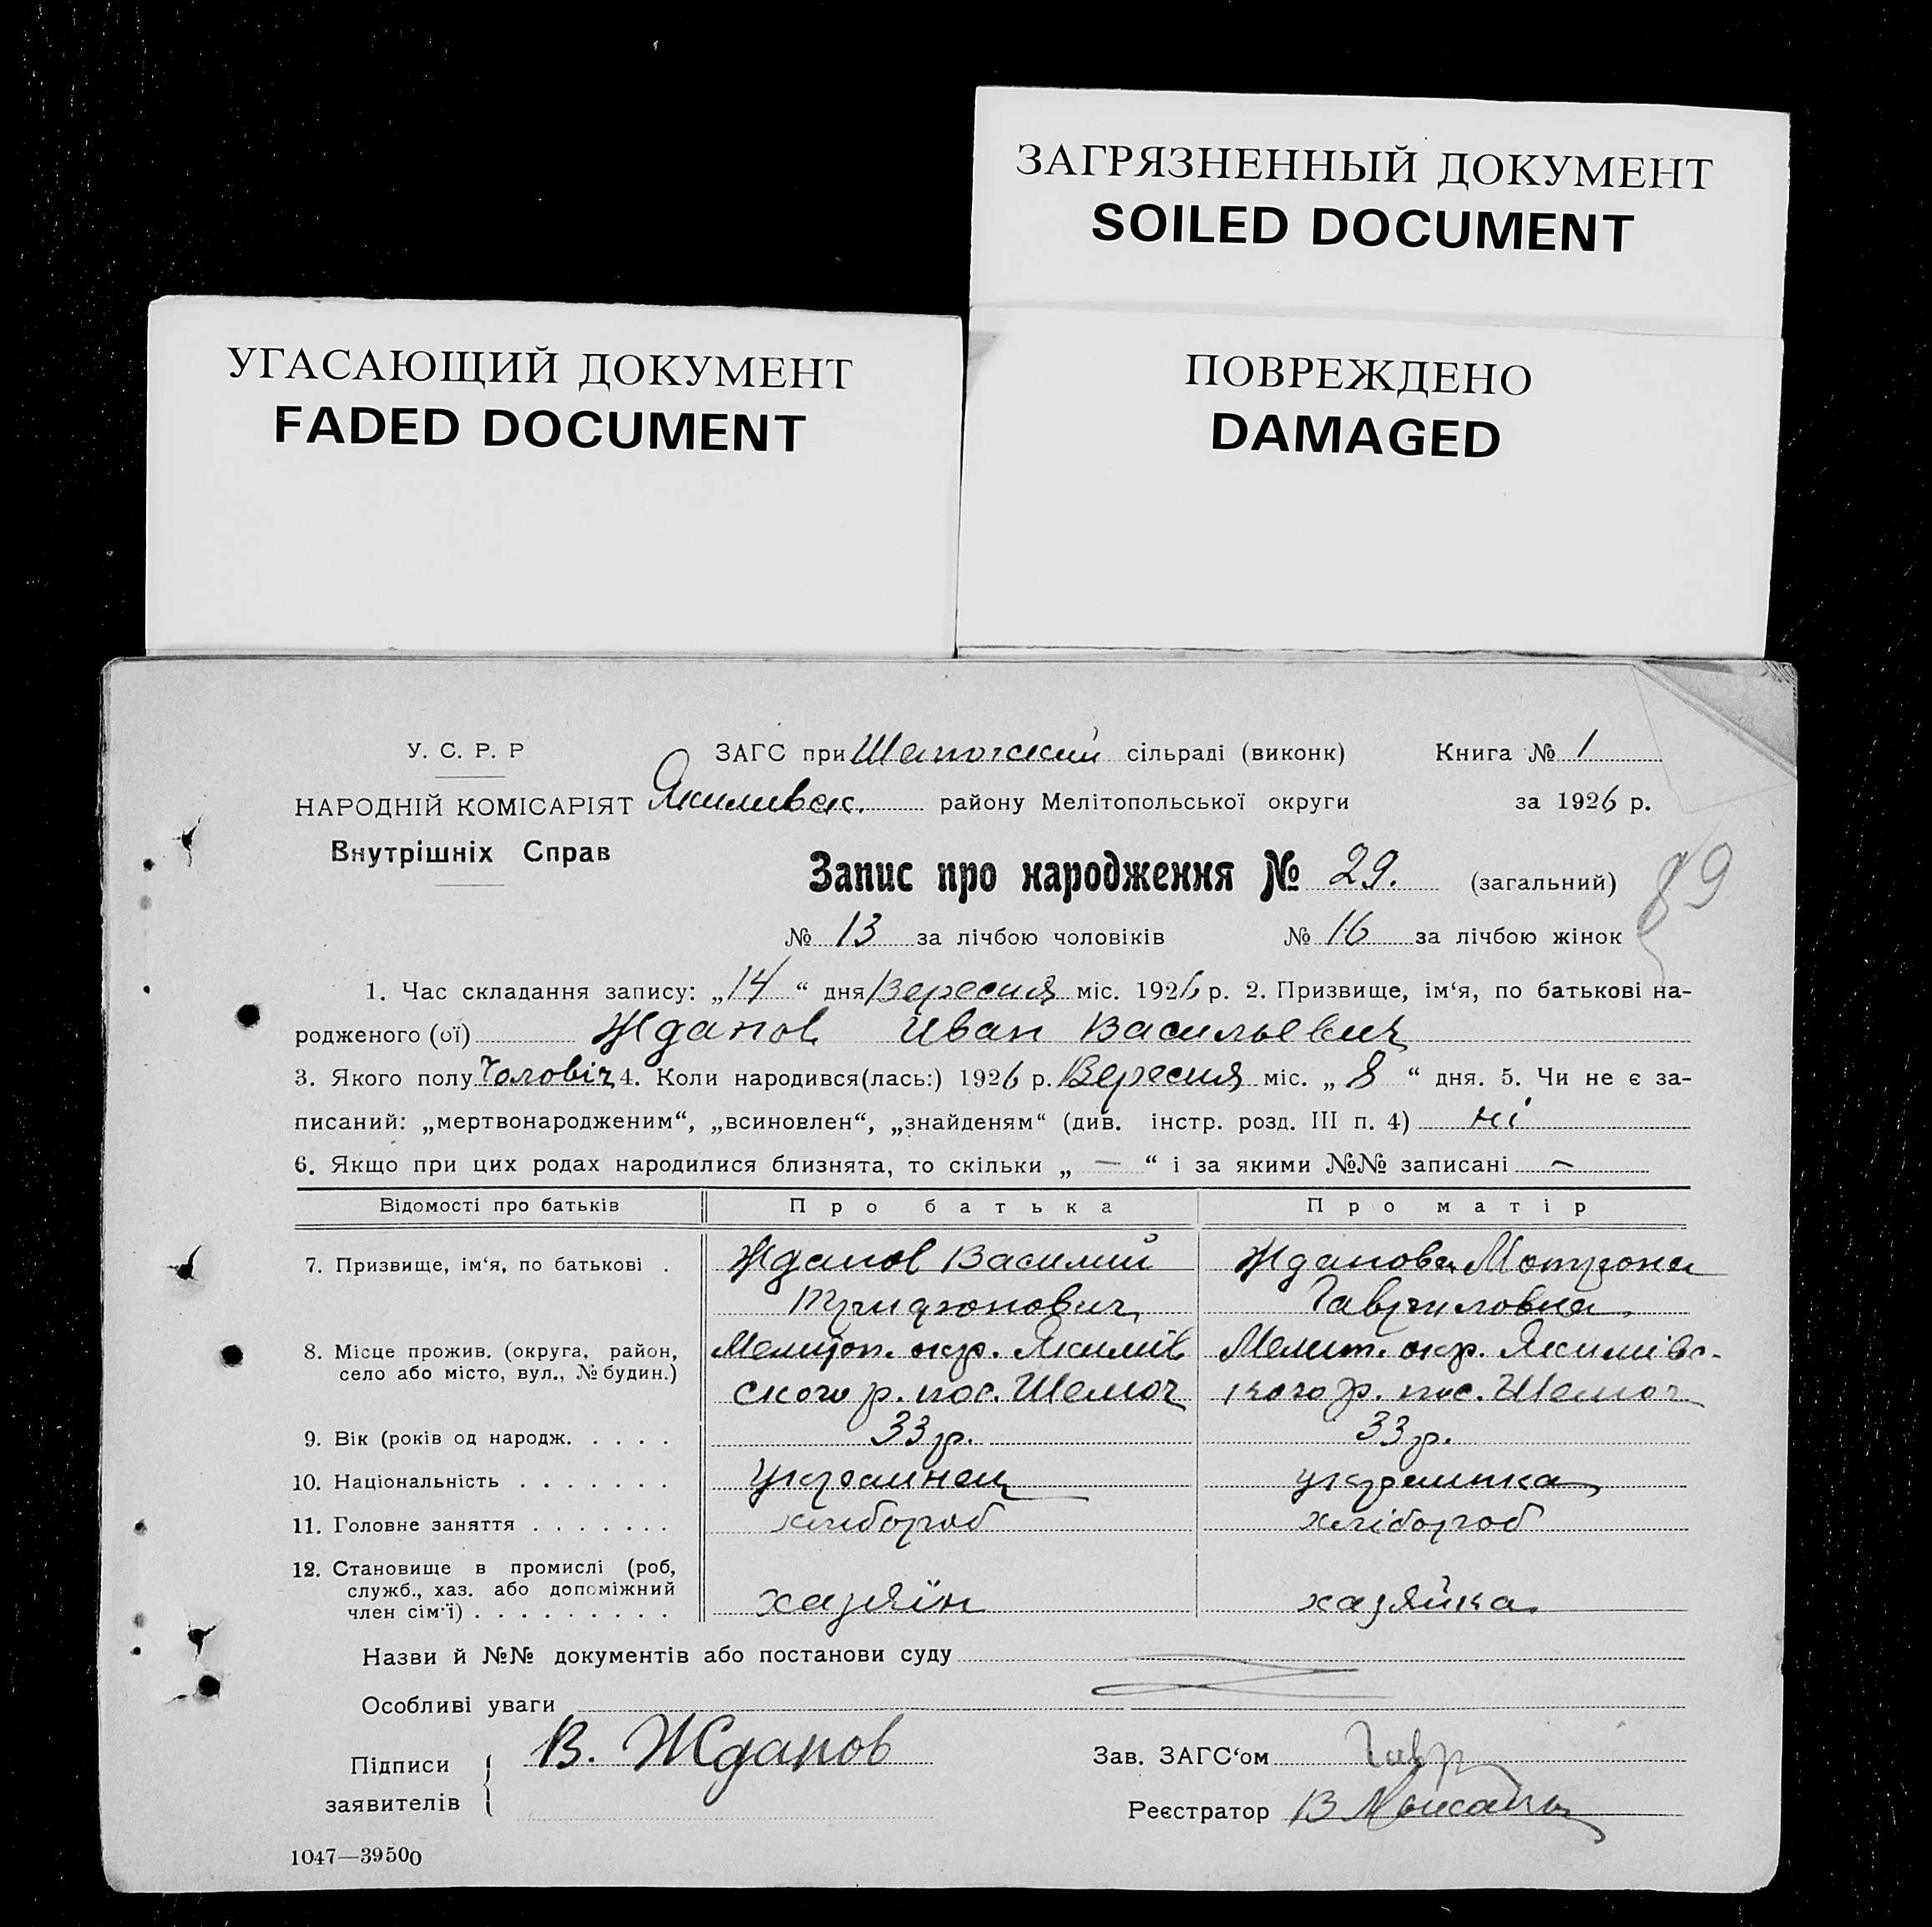 ЗАГРЯЗНЕННЫЙ ДОКУМЕНТ
SOILED DOCUMENT
УГАСАЮЩИЙ ДОКУМЕНТ
FADED DOCUMENT
ПОВРЕЖДЕНО
DAMAGED
У. С. Р. Р
НАРОДНІЙ КОМІСАРІЯТ
Внутрішніх Справ
ЗАГС при сільраді (виконк) Книга № 1
району Мелітопольської округи за 1926 р.
Запис про народження № 29. (загальний)
89
№ 13 за лічбою чоловіків № 16 за лічбою жінок
1. Час складання запису: „14“ дня Вересня міс. 1926 р. 2. Призвище, ім‘я, по батькові на-
родженого (ої) Жданов Иван Васильевич
3. Якого полу Чоловіч 4. Коли народився(лась:) 1926 р. Вересня міс. „8“ дня. 5. Чи не є за-
писаний: „мертвонародженим“, „всиновлен“, „знайденям“ (див. інстр. розд. III п. 4) ні
6. Якщо при цих родах народилися близнята, то скільки „ — “ і за якими №№ записані —
Відомості про батьків Про батька Про матір
7. Призвище, ім‘я, по батькові . Жданов Василий Жданова Мотрона
Трифонович Гавриловна
8. Місце прожив. (округа, район, Мелітоп. окр. Якимів Мелит. окр. Якимівс-
село або місто, вул., № будин.) ского р. пос. кого р. пос.
9. Вік (років од народж. . . . . 33 р. 33 р.
10. Національність . . . . . . . украинец украинка
11. Головне заняття . . . . . . . хлибороб хлібороб
12. Становище в промислі (роб,
служб., хаз. або допоміжний
член сім‘ї) . . . . . . . . . хазяїн хазяйка
Назви й №№ документів або постанови суду
Особливі уваги
Підписи В. Жданов Зав. ЗАГС‘ом
заявителів Реєстратор В
1047—39500